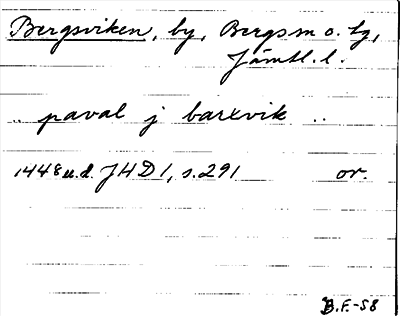 Bergsviken, by, Bergs m o. tg,
Jämtl. l.
.. paval j barxvik ..
1448 u.d. JHD 1, s. 291 or.
B.F.-58